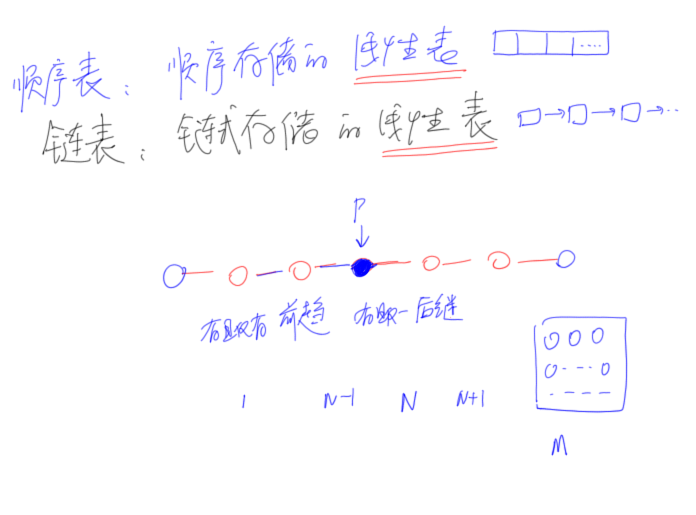 顺序表: 顺序存储的 线性表 ....
链表: 链式存储的线性表 ..
P
有且仅有 前趋 有且仅一后继
1 N-1 N N+1
M